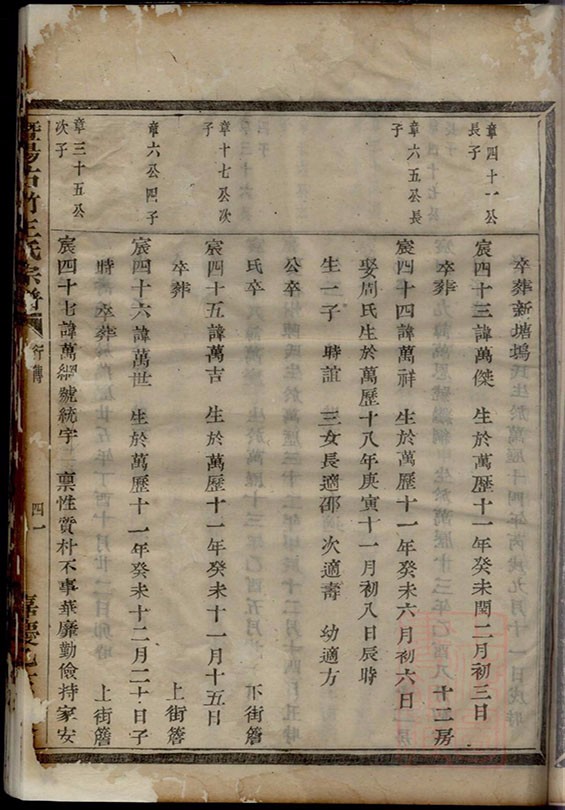 卒葬新塘塢
章四十一公
長子
宸四十三諱萬傑 生於萬歷十一年癸未閏二月初三日
卒葬 十二房
章六五公長
子
宸四十四諱萬祥 生於萬歷十一年癸未六月初六日
娶周氏生於萬歷十八年庚寅十一月初八日辰時
生一子 時誼 三女長適邵 次適壽 幼適方
公卒
氏卒 下街簷
章十七公次
子
宸四十五諱萬吉 生於萬歷十一年癸未十一月十五日
卒葬 上街簷
章六公四子
宸四十六諱萬世 生於萬歷十一年癸未十二月二十日子
時 卒葬 上街簷
章三十五公
次子
宸四十七諱萬 號統宇 稟性質朴不事華靡勤儉持家安
暨陽古竹王氏宗譜
行傳
四一
嘉慶